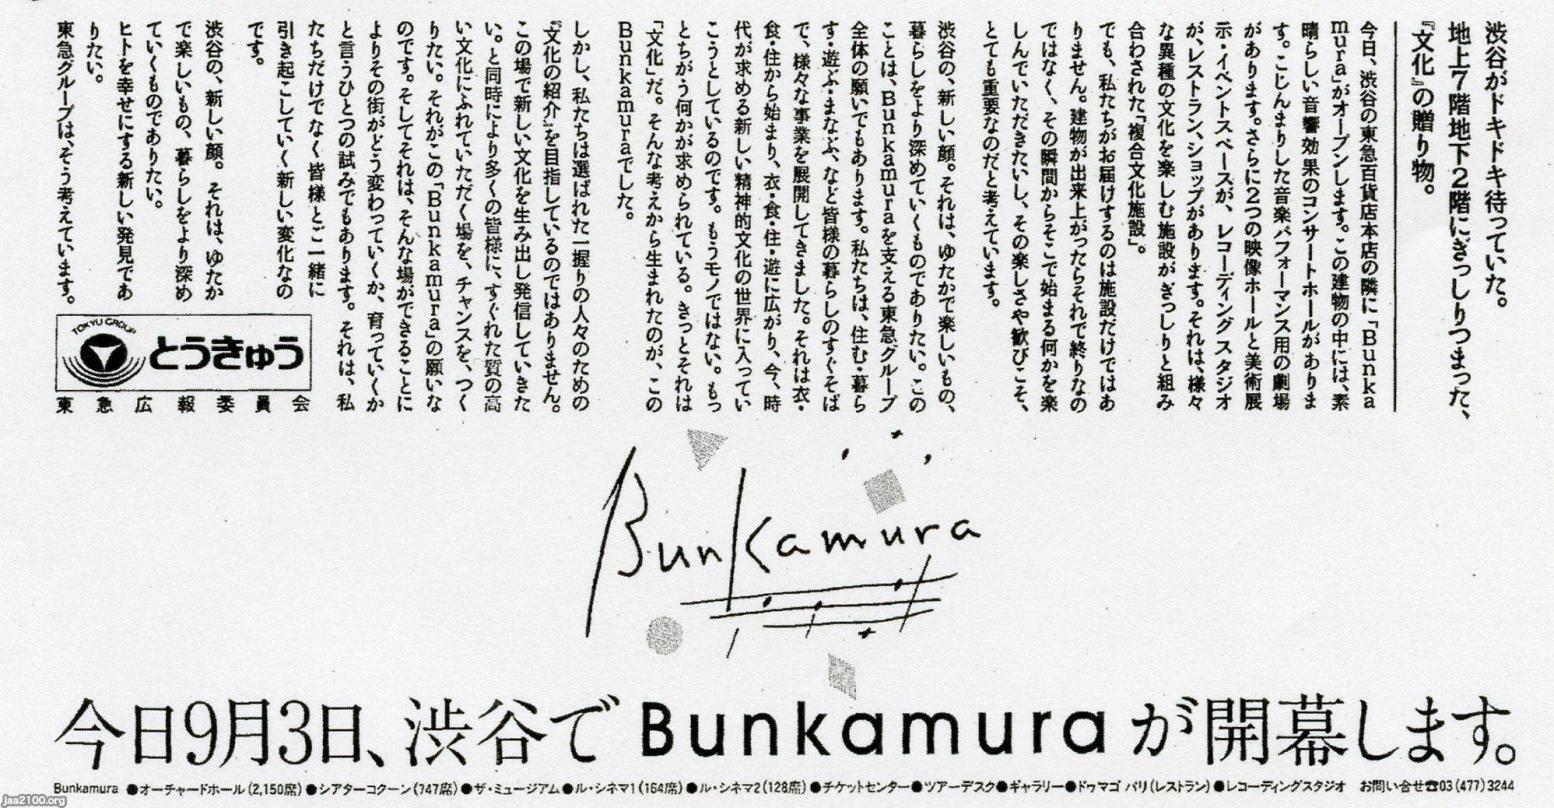 渋谷がドキドキ待っていた。
地上7階地下2階にぎっしりつまった、
『文化』の贈り物。
今日、渋谷の東急百貨店本店の隣に「Bunka
mura」がオープンします。この建物の中には、素
晴らしい音響効果のコンサートホールがありま
す。こじんまりした音楽パフォーマンス用の劇場
があります。さらに2つの映像ホールと美術展
示・イベントスペースが、レコーディングスタジオ
が、レストラン、ショップがあります。それは、様々
な異種の文化を楽しむ施設がぎっしりと組み
合わされた「複合文化施設」。
でも、私たちがお届けするのは施設だけではあ
りません。建物が出来上がったらそれで終りなの
ではなく、その瞬間からそこで始まる何かを楽
しんでいただきたいし、その楽しさや歓びこそ、
とても重要なのだと考えています。
渋谷の、新しい顔。それは、ゆたかで楽しいもの、
暮らしをより深めていくものでありたい。この
ことは、Bunkamuraを支える東急グループ
全体の願いでもあります。私たちは、住む・暮ら
す・遊ぶ・まなぶ、など皆様の暮らしのすぐそば
で、様々な事業を展開してきました。それは衣・
食・住から始まり、衣・食・住・遊に広がり、今、時
代が求める新しい精神的文化の世界に入ってい
こうとしているのです。もうモノではない。もっ
とちがう何かが求められている。きっとそれは
「文化」だ。そんな考えから生まれたのが、この
Bunkamuraでした。
しかし、私たちは選ばれた一握りの人々のための
『文化の紹介』を目指しているのではありません。
この場で新しい文化を生み出し発信していきた
い。と同時により多くの皆様に、すぐれた質の高
い文化にふれていただく場を、チャンスを、つく
りたい。それがこの「Bunkamura」の願いな
のです。そしてそれは、そんな場ができることに
よりその街がどう変わっていくか、育っていくか
と言うひとつの試みでもあります。それは、私
たちだけでなく皆様とご一緒に
引き起こしていく新しい変化なの
です。
渋谷の、新しい顔。それは、ゆたか
で楽しいもの、暮らしをより深め
ていくものでありたい。
ヒトを幸せにする新しい発見であ
りたい。
東急グループは、そう考えています。
TOKYU GROUP
とうきゅう
東急広報委員会
Bunkamura
今日9月3日、渋谷でBunkamuraが開幕します。
Bunkamura ●オーチャードホール(2,150席)●シアターコクーン(747席)●ザ・ミュージアム●ル・シネマ1(164席)●ル・シネマ2(128席)●チケットセンター●ツアーデスク●ギャラリー●ドゥマゴ パリ(レストラン)●レコーディングスタジオ お問い合せ☎03(477)3244
jaa2100.org